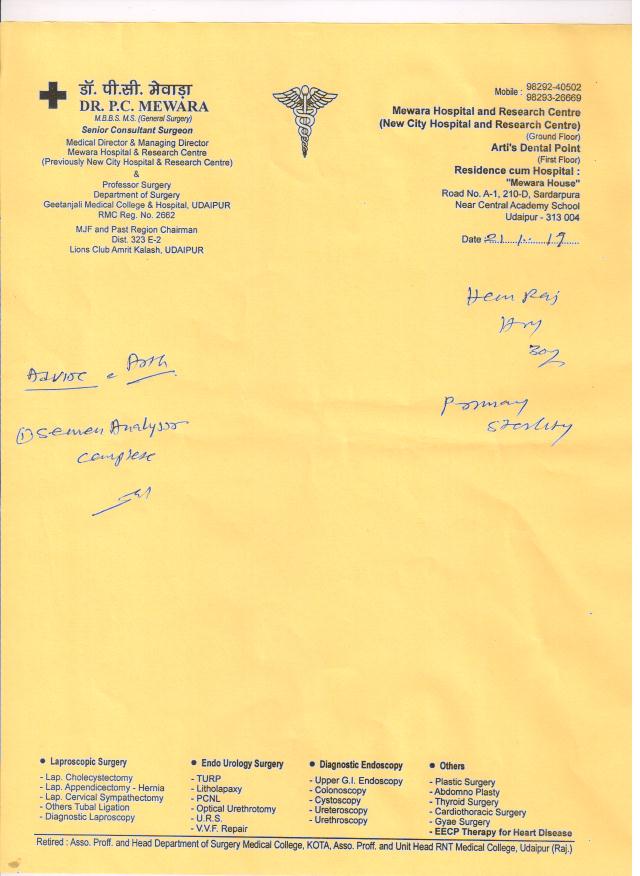 डॉ. पी.सी. मेवाड़ा
DR. P.C. MEWARA
M.B.B.S. M.S. (General Surgery)
Senior Consultant Surgeon
Medical Director & Managing Director
Mewara Hospital & Research Centre
(Previously New City Hospital & Research Centre)
&
Professor Surgery
Department of Surgery
Geetanjali Medical College & Hospital, UDAIPUR
RMC Reg. No. 2662
MJF and Past Region Chairman
Dist. 323 E-2
Lions Club Amrit Kalash, UDAIPUR
Mobile : 98292-40502
98293-26669
Mewara Hospital and Research Centre
(New City Hospital and Research Centre)
(Ground Floor)
Arti's Dental Point
(First Floor)
Residence cum Hospital :
"Mewara House"
Road No. A-1, 210-D, Sardarpura
Near Central Academy School
Udaipur - 313 004
Date
Hem Raj
30y
Primary
Sterility
Advise
Semen Analysis
complete
Laproscopic Surgery
- Lap. Cholecystectomy
- Lap. Appendicectomy - Hernia
- Lap. Cervical Sympathectomy
- Others Tubal Ligation
- Diagnostic Laproscopy
Endo Urology Surgery
- TURP
- Litholapaxy
- PCNL
- Optical Urethrotomy
- U.R.S.
- V.V.F. Repair
Diagnostic Endoscopy
- Upper G.I. Endoscopy
- Colonoscopy
- Cystoscopy
- Ureteroscopy
- Urethroscopy
Others
- Plastic Surgery
- Abdomno Plasty
- Thyroid Surgery
- Cardiothoracic Surgery
- Gyae Surgery
- EECP Therapy for Heart Disease
Retired : Asso. Proff. and Head Department of Surgery Medical College, KOTA, Asso. Proff. and Unit Head RNT Medical College, Udaipur (Raj.)